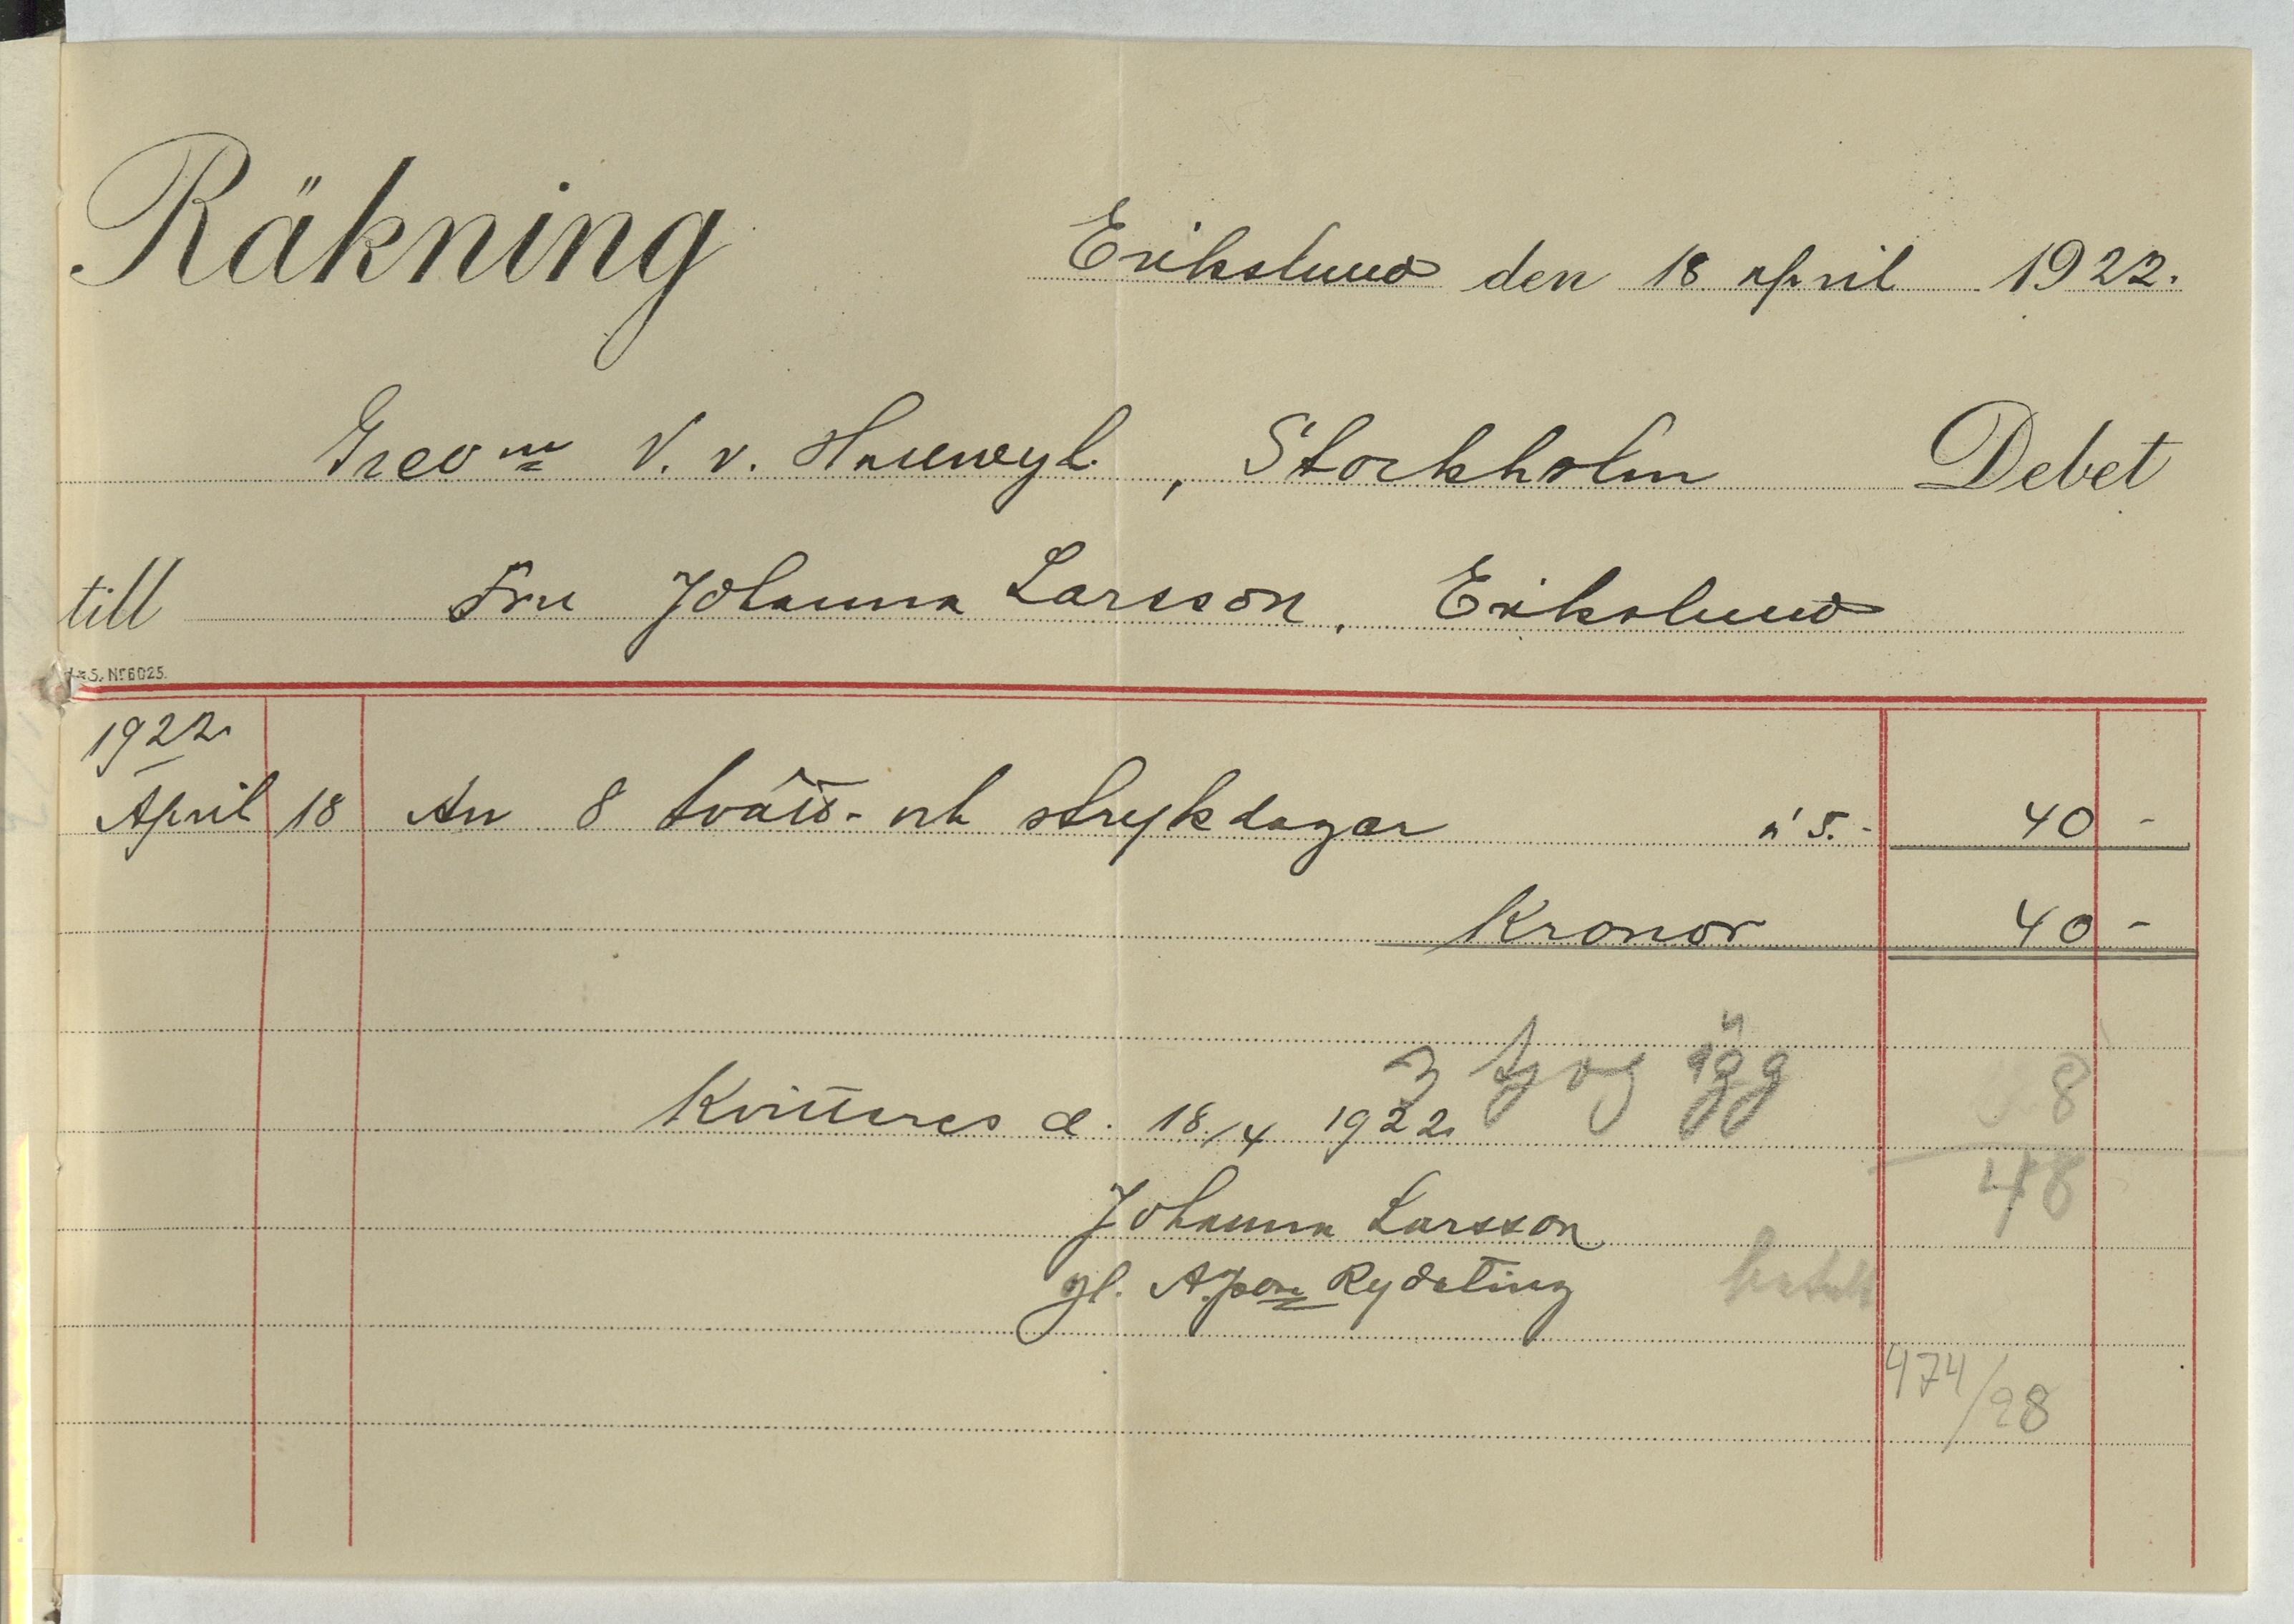 Räkning
Erikslund den 18 april 1922.
Grevnn V. v. Hallwyl, Stockholm Debet
till Fru Johanna Larsson, Erikslund
S. Nr 6025.
1922
April 18 An 8 tvätt- och strykdagar á 5.- 40 -
Kronor 40 -
3 tjog ägg 8
Kvitteres d. 18/4 1922
48
Johanna Larsson
gl. Rydsting
betalt
474/28